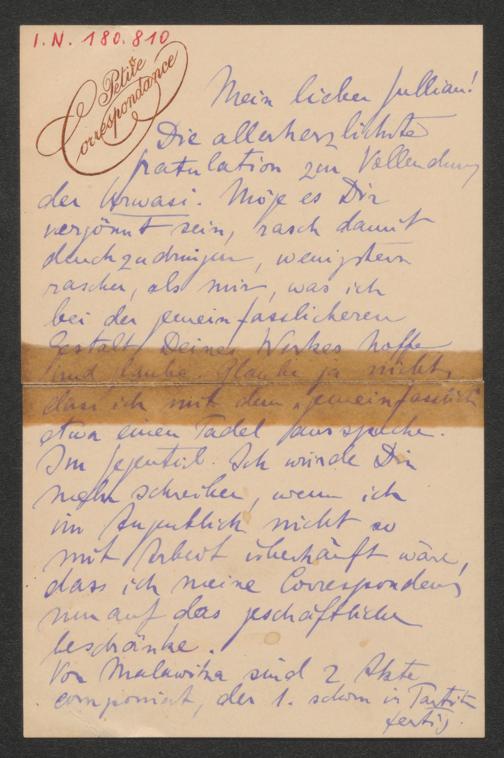 I.N. 180.810
Petite
Correspondance
Mein lieber Jullian!
Die allerherzlichste
Gratulation zur Vollendung
der Urwasi. Möge es Dir
vergönnt sein, rasch damit
durchzudringen, wenigstens
rascher, als mir, was ich
bei der gemeinfasslicheren
Gestalt Deines Werkes hoffe
und glaube. Glaube ja nicht,
dass ich mit dem "gemeinfasslich"
etwa einen Tadel ausspreche.
Im Gegenteil. Ich würde Dir
mehr schreiben, wenn ich
im Augenblick nicht so
mit Arbeit überhäuft wäre,
dass ich meine Correspondenz
nur auf das geschäftliche
beschränke.
Von Malawika sind 2 Akte
componiert, der 1. schon in Partitur
fertig.